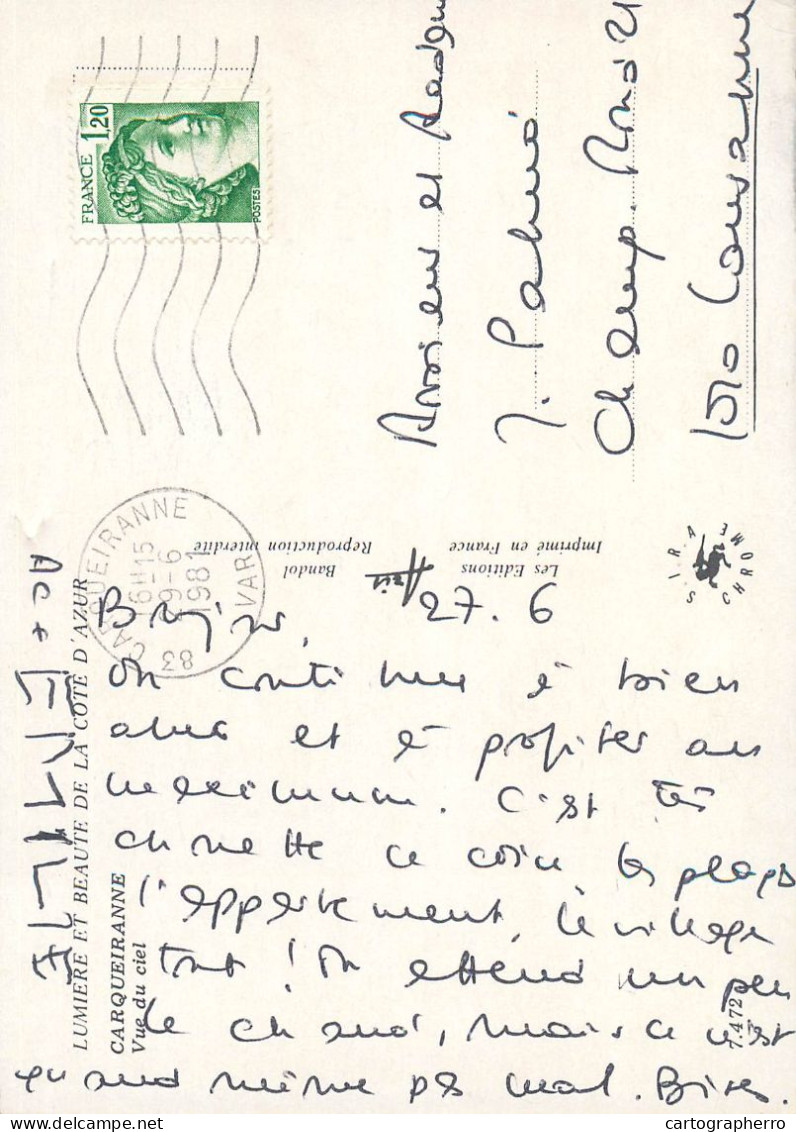 FRANCE 1,20
POSTES
CARQUEIRANNE
16H15
29-6
1981
83 VAR
Les Editions
Imprimé en France
Bandol
Reproduction interdite
SIRA CHROME
LUMIÈRE ET BEAUTÉ DE LA CÔTE D'AZUR
CARQUEIRANNE
Vue du ciel
7.472
J.
Champ-Rond 21
1510
27.6
on continue à bien
et à profiter au
maximum. c'est très
chouette ce coin les plages
l'appartement, le village
tout ! On attend un peu
le chaud, mais ce n'est
quand même pas mal. Bises.
cartographerro